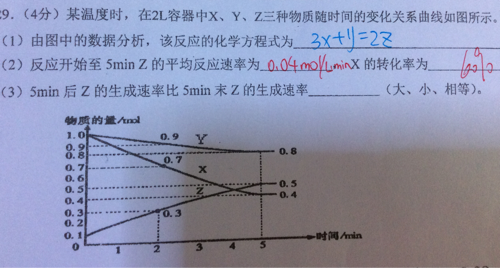 29.（4分）某温度时，在2L容器中X、Y、Z三种物质随时间的变化关系曲线如图所示。
（1）由图中的数据分析，该反应的化学方程式为 3x+y=2z
（2）反应开始至 5min Z 的平均反应速率为 0.04mol/L·min X 的转化率为 60%
（3）5min 后 Z 的生成速率比 5min 末 Z 的生成速率________（大、小、相等）。
物质的量/mol
1.0
0.9 0.9 Y
0.8 0.8
0.7 0.7 X
0.5 Z 0.5
0.4 0.4
0.3 0.3
0.2
0.1
0 1 2 3 4 5 时间/min